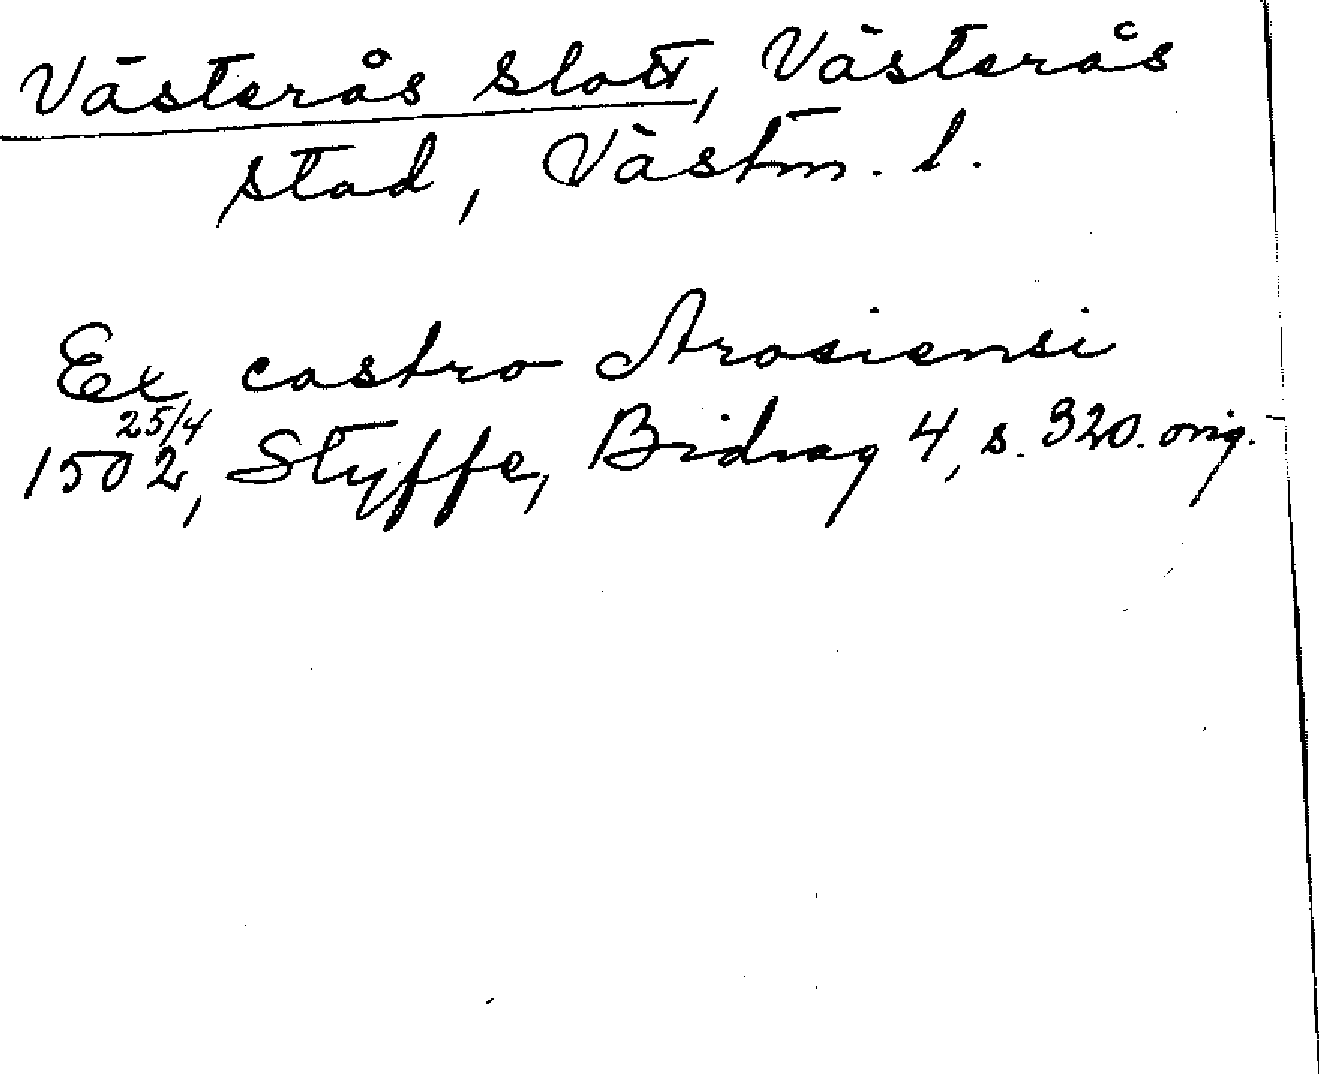 Västerås slott, Västerås
stad, Västm. l.
Ex castro Arosiensi
25/4
1502, Styffe, Bidrag 4, s. 320. orig.